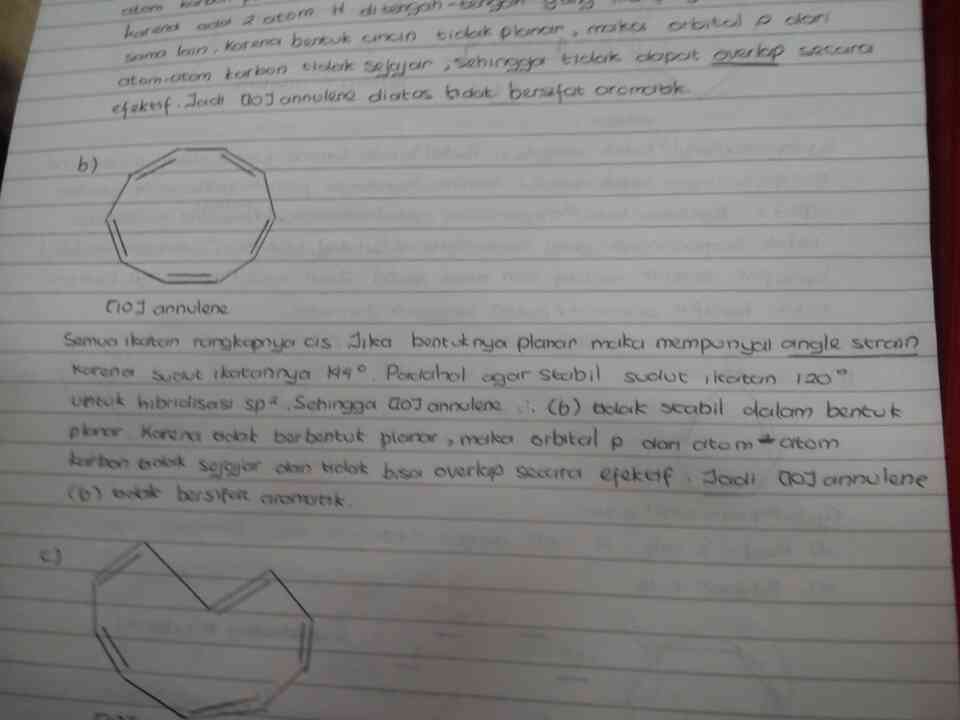 atom karbon
karena ada 2 atom H ditengah-tengah yang
sama lain. Karena bentuk cincin tidak planar, maka orbital p dari
atom-atom karbon tidak sejajar, sehingga tidak dapat overlap secara
efektif. Jadi [10] annulene diatas tidak bersifat aromatik.
b)
[10] annulene
Semua ikatan rangkapnya cis. Jika bentuknya planar maka mempunyai angle strain
karena sudut ikatannya 144°. Padahal agar stabil sudut ikatan 120°
untuk hibridisasi sp². Sehingga [10] annulene (b) tidak stabil dalam bentuk
planar. Karena tidak berbentuk planar, maka orbital p dari atom-atom
karbon tidak sejajar dan tidak bisa overlap secara efektif. Jadi [10] annulene
(b) tidak bersifat aromatik.
c)